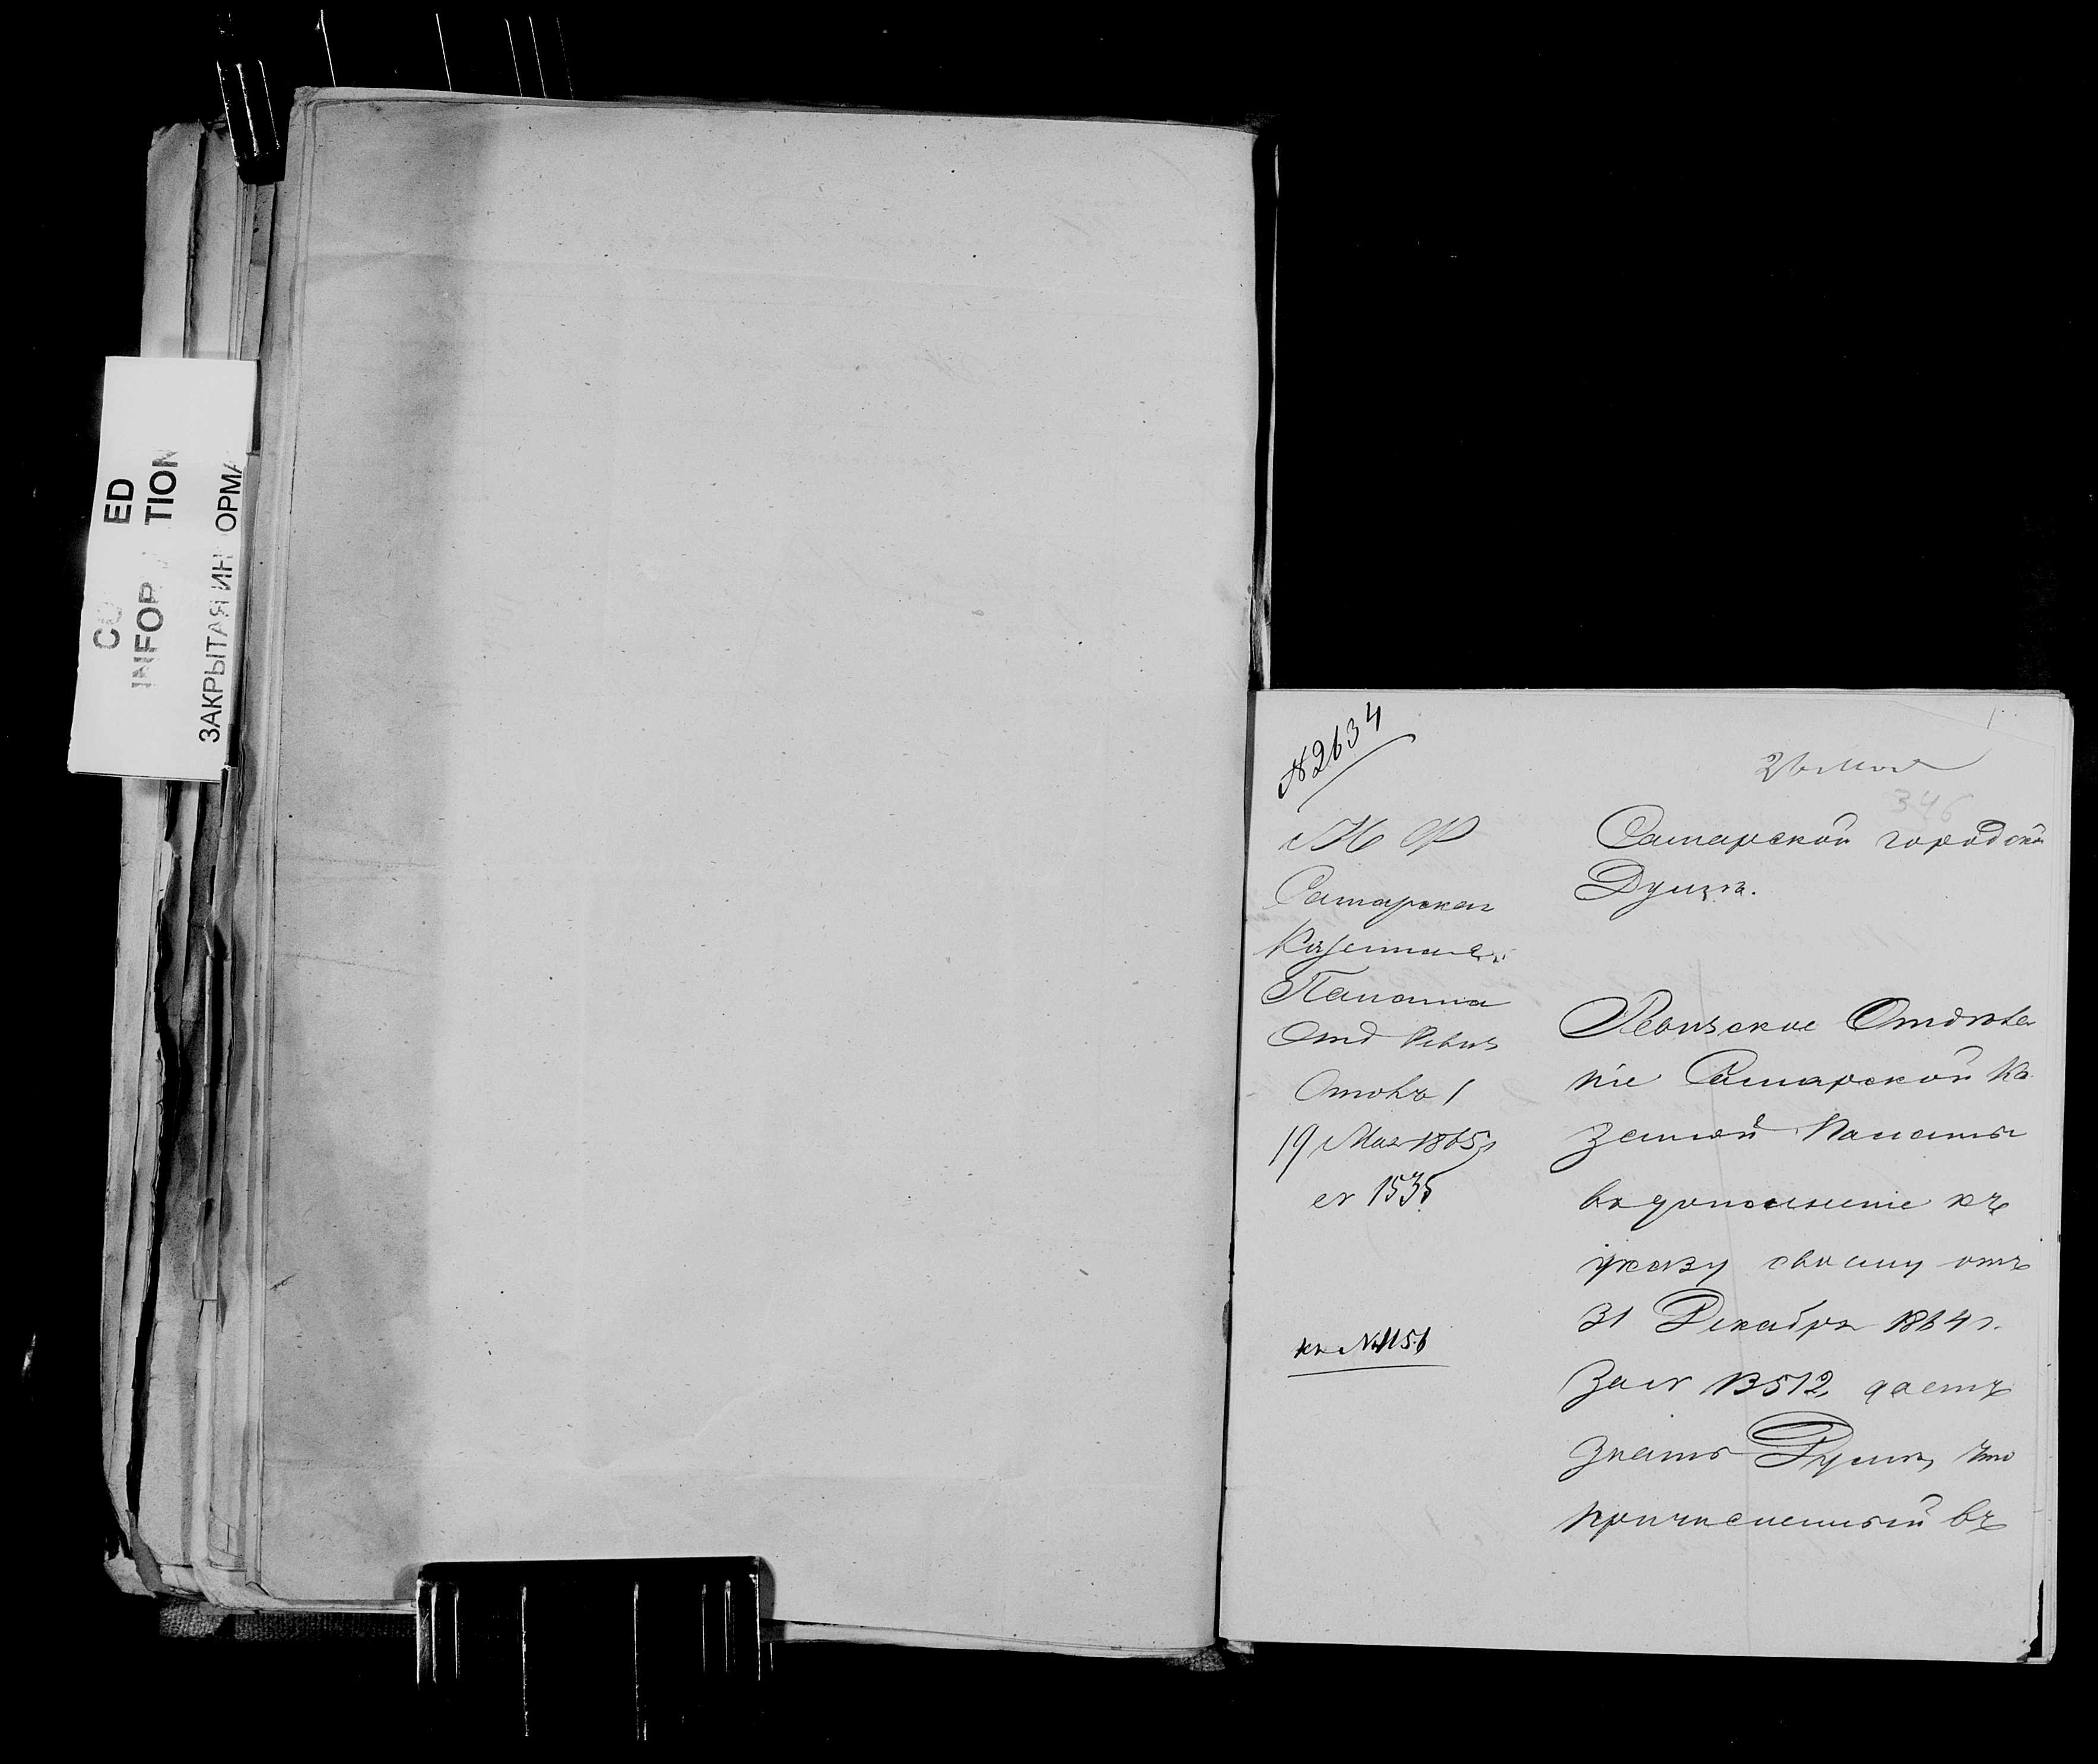 CL ED
INFOR TION
ЗАКРЫТАЯ ИН ОРМА
№ 2634
М Ф
Самарская
Казенная
Палата
Отд Ревиз
Столъ 1
19 Мая 1865 г
№ 1535
къ № 1156
346
Самарской городской
Думѣ.
Ревизское Отдѣле
ніе Самарской Ка
зенной Палаты
въ дополненіе къ
указу своему отъ
31 Декабря 1864 г.
за № 13512 даетъ
знать Думѣ, что
причисленный въ